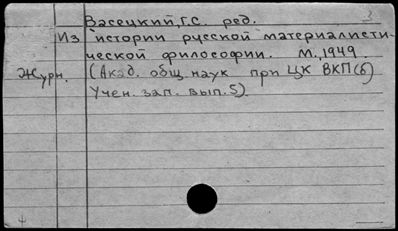 Васецкий, Г.С. ред.
Из истории русской материалисти-
ческой философии. М., 1949.
Журн. (Акад. общ. наук при ЦК ВКП(б)
Учен. зап. вып. 5)